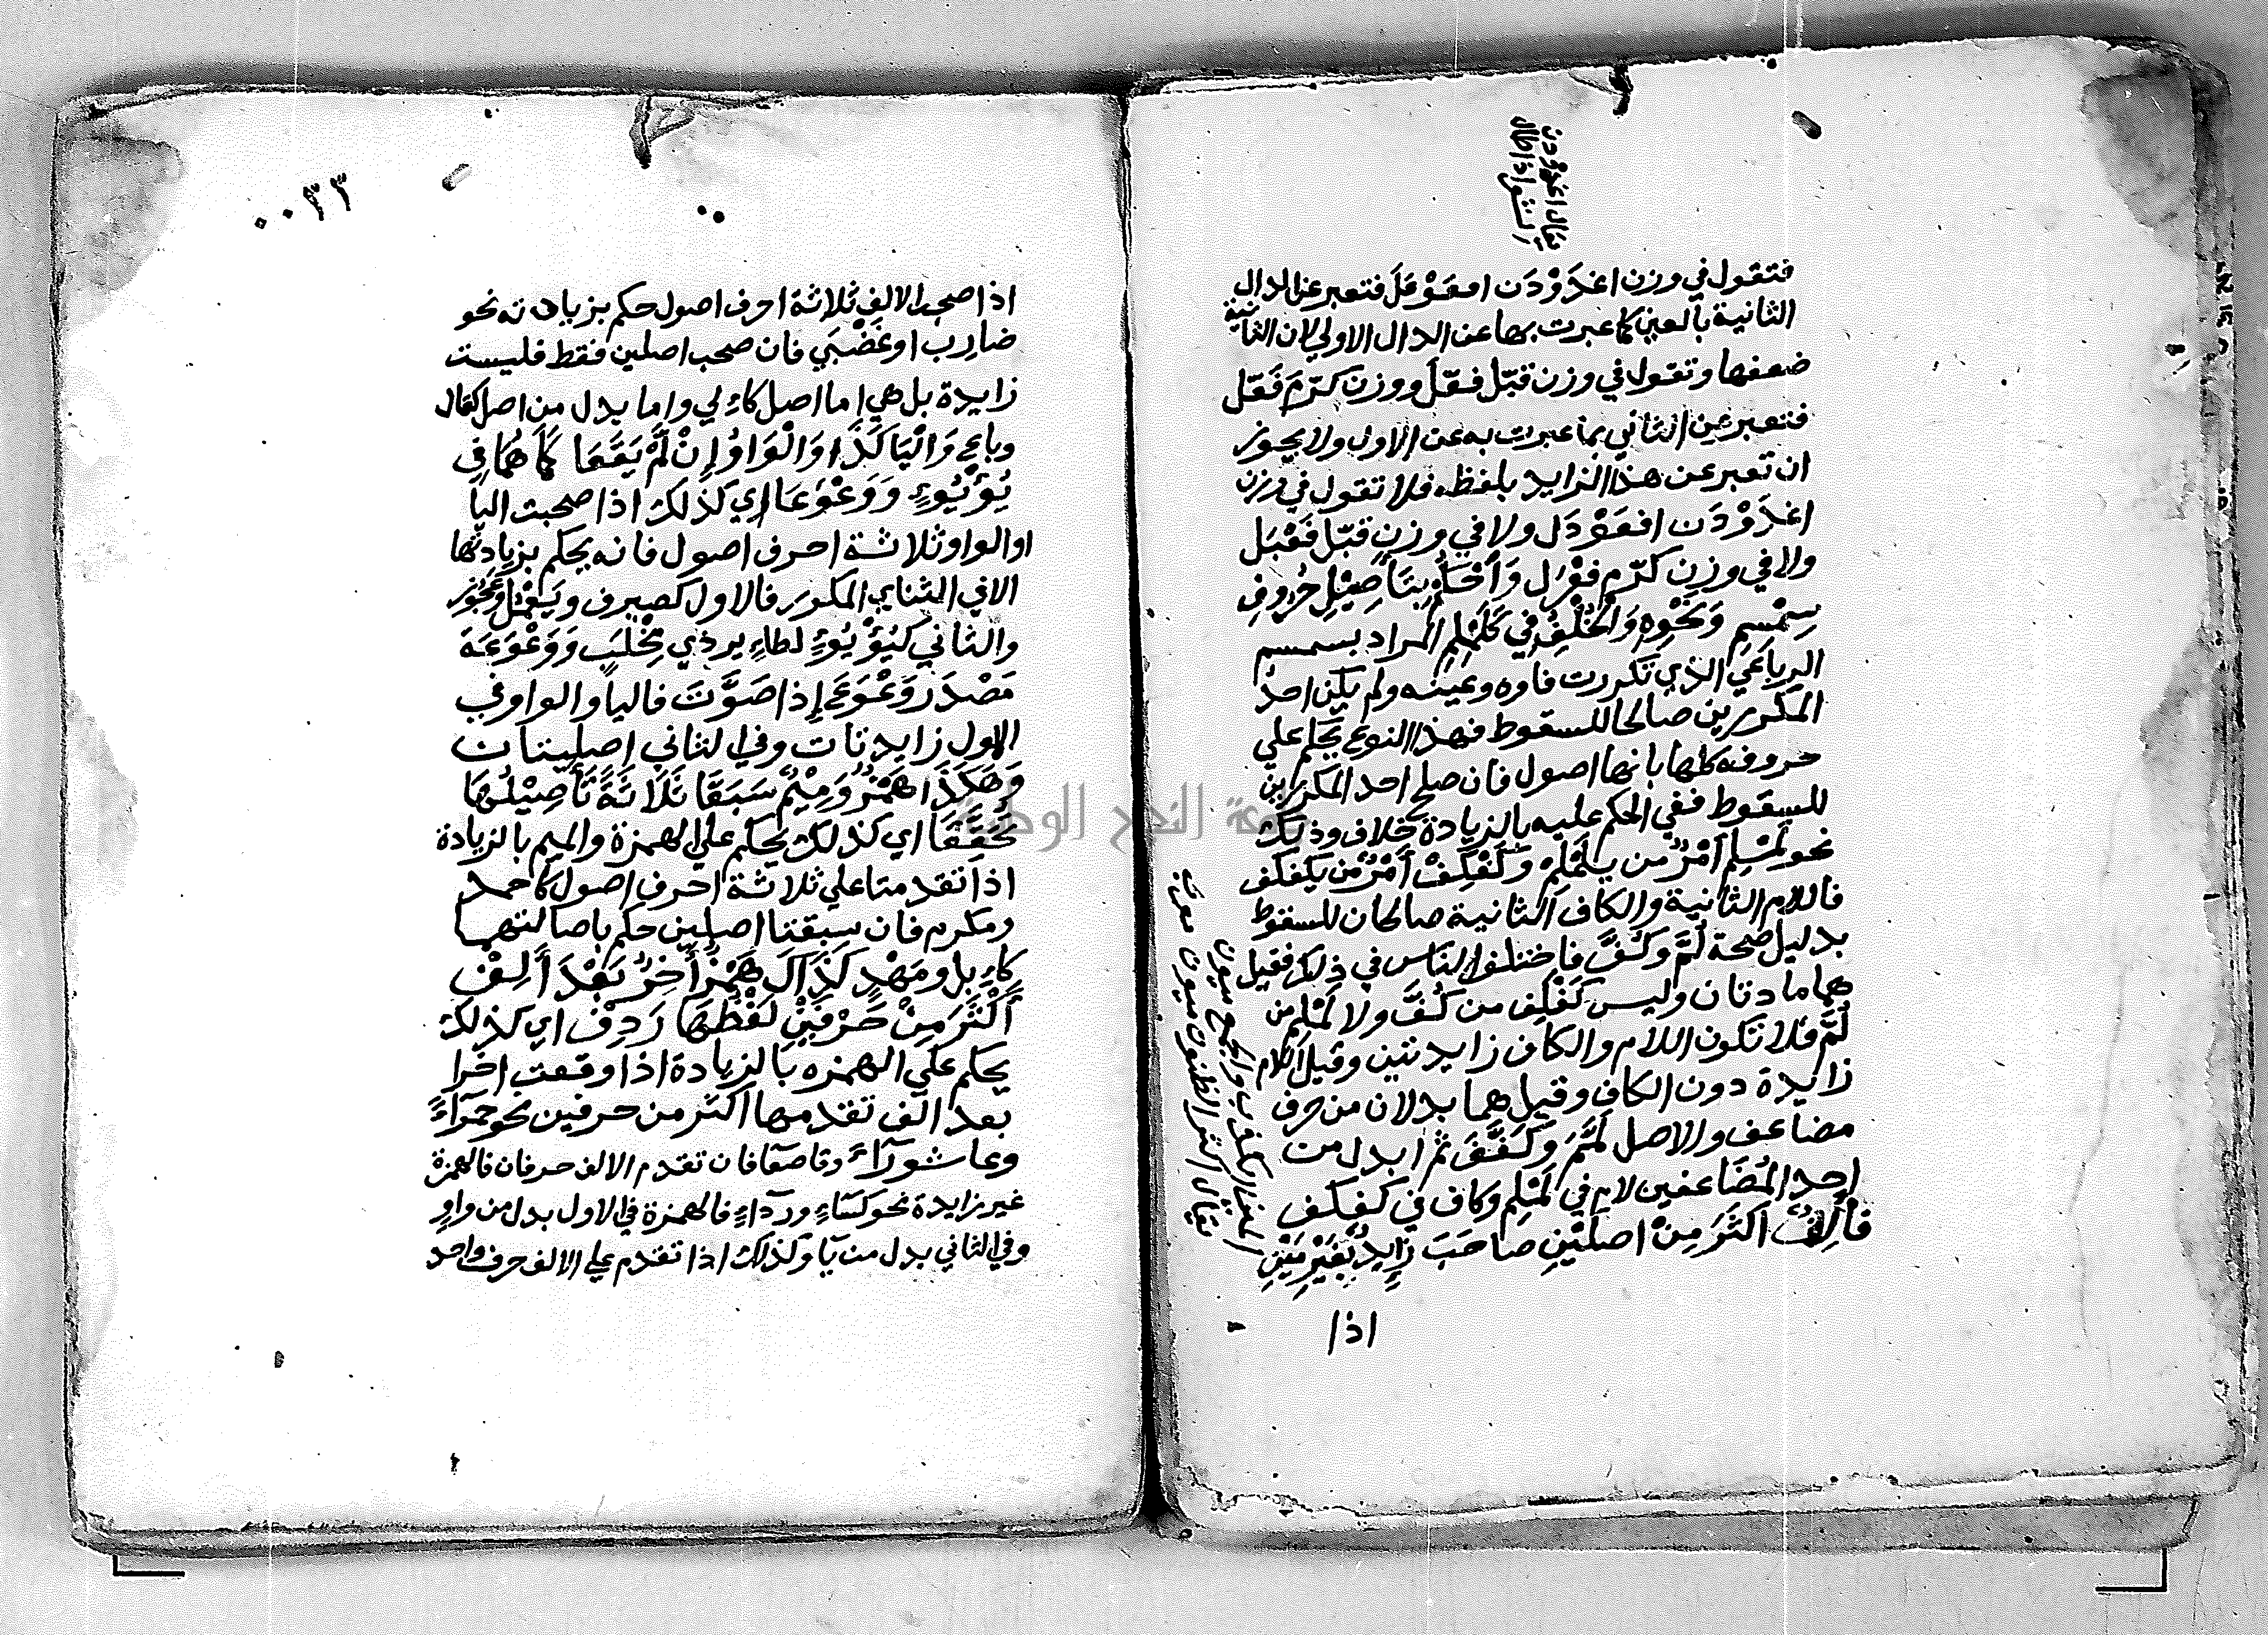 يقال اغدودن
الشعر اذا طال
فتقول في وزن اغدَوْدَن افعَوْعَلَ فتعبر عن الدال
الثانية بالعين كما عبرت بها عن الدال الاولي لان الثانية
ضعفها وتقول في وزن قتّل فعّل ووزن كرّمَ فَعّل
فتعبر عن الثاني بما عبرت به عن الاول ولا يجوز
ان تعبر عن هذا الزايد بلفظه فلا تقول في وزن
اغدَوْدَن افعَوْدَل ولا في وزن قتّل فَعْتَل
ولا في وزن كرّم فعْرَل وَاحْكُمْ بِتَأصِيْلِ حُرُوفِ
سِمْسِمِ وَنَحْوِهِ وَالْخُلْفُ فِي كَلَمْلِمِ المراد بسمسم
الرباعي الذي تكررت فاوه وعينه ولم يكن احدُ
المكررين صالحا للسقوط فهذا النوع يحكم علي
حروفه كلها بانها اصول فان صلح احد المكررين
للسقوط ففي الحكم عليه بالزيادة خلاف وذلك
نحو لَمْلِم امْرٌ من يلَمْلِم وكَفْكِفْ أمْرٌ من يكفكف
فاللام الثانية والكاف الثانية صالحان للسقوط
بدليل صحة لَمَّ وكَفَّ فاختلف الناس في ذلك فقيل
هما مادتان وليس كَفْكِف من كَفَّ ولا لَمْلِم من
لَمَّ فلا تكون اللام والكاف زايدتين وقيل اللام
زايدة دون الكاف وقيل هما بدلان من حرف
مضاعف والاصل لَمَّمَ وَكَفَّفَ ثم ابدل من
احد المُضَاعفين لام في لَمْلِم وكاف في كفكف
فأَلِفٌ اكثَرَ مِنْ اصلَيْنِ صاحَبَ زَايِدٌ بِغَيْرِ مَيْنِ
اذا
اذا صحب الالف ثلاثة احرف اصول حكم بزيادته نحو
ضارِب وغَضْبَي فان صحب اصلين فقط فليست
زايدة بل هي اما اصل كاءلي واما بدل من اصل كقال
وباع وَالْيَا كَذَا وَالْوَاوُ إِنْ لَمْ يَقَعَا كَمَا هُمَا فِي
يُؤْيُوءٍ وَوَعْوَعَا اي كذلك اذا صحبت اليا
او الواو ثلاثة احرف اصول فانه يحكم بزيادتها
الا في الثناي المكرر فالاول كصيرف ويَعْمَل وعَجُوز
والثاني كيُؤْيُوءٍ لطاءِيرٍ ذي مِخْلَبٍ وَوَعْوَعَةَ
مَصْدَر وَعْوَعَ إذا صَوَّتَ فاليا والواو في
الاول زايدتان وفي الثاني اصليتان
وَهَكَذَا هَمْزٌ وَمِيْمٌ سَبَقَا ثَلَاثَةً تَأصِيْلُهَا
تُحُقِّقَا اي كذلك يحكم علي الهمزة والميم بالزيادة
اذا تقدمتا علي ثلاثة احرف اصول كاحمد
ومكرم فان سبقتا اصلين حكم باصالتهما
كاءِبل ومَهْدٍ كَذَاكَ هَمْزٌ آخِرٌ بَعْدَ أَلِفْ
أكْثَرَ مِنْ حَرْفَيْنِ لَفْظُهَا رَدِفْ اي كذلك
يحكم علي الهمزه بالزيادة اذا وقعت اخرا
بعد الف تقدمها اكثر من حرفين نحو حمرآءَ
وعاشورآءَ وقاصعا فان تقدم الالف حرفان فالهمزة
غير زايدة نحو كسَاءٍ ورِدَاءٍ فالهمزة في الاول بدل من واوٍ
وفي الثاني بدل من يآ وكذلك اذا تقدم علي الالف حرف واحد
٠٠٣٣
جامعة النجاح الوطنية